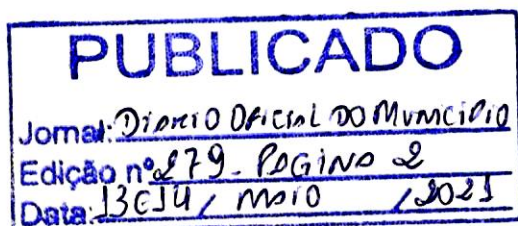 PUBLICADO
Jornal: DiARiO OFiCiAL DO MUNiCÍPiO
Edição nº 279 - PÁGiNA 2
Data: 13 E 14 / MAiO / 2021